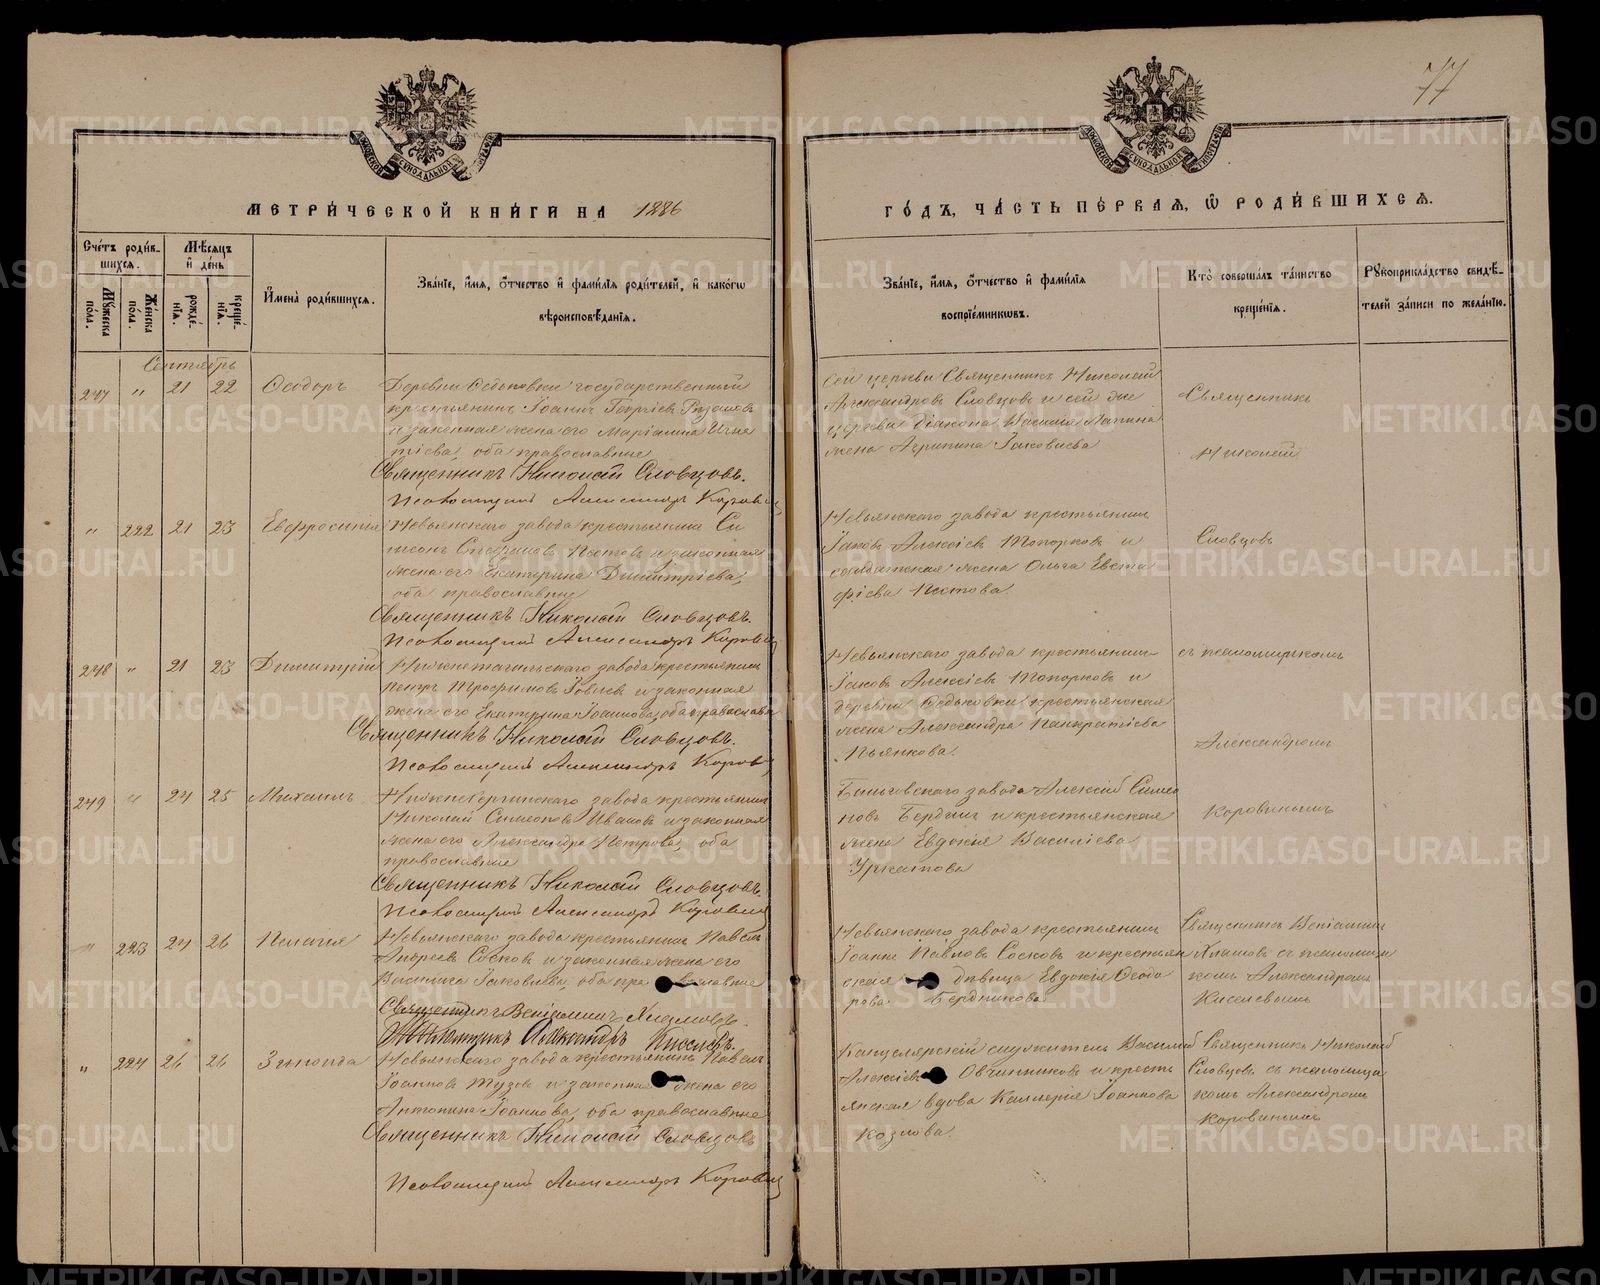 77
МЕТРИ́ЧЕСКОЙ КНИ́ГИ НА 1886
ГО́ДЪ, ЧА́СТЬ ПЕ́РВАЯ, Ѡ РОДИ́ВШИХСЯ.
Сче́тъ роди́в-
шихся.
Мѣ́сяцъ
и де́нь
Му́жеска по́ла.
Же́нска по́ла.
рожде́нія.
креще́нія.
И́мена роди́вшихся.
Зва́ніе, и́мя, о́тчество и фами́лія роди́телей, и како́гѡ
вѣроисповѣ́данія.
Зва́ніе, и́мя, о́тчество и фами́лія
воспріе́мникѡвъ.
Кто̀ соверша́лъ та́инство
креще́нія.
Рукоприкла́дство свидѣ́-
телей за́писи по жела́нію.
Сентябрь
247 " 21 22 Ѳеодоръ
Деревни Ѳедьковки государственный
крестьянинъ Іоаннъ Георгіевъ
и законная жена его Маріамна Игна
тіева, оба православные
Священникъ Николай Словцовъ.
Псаломщикъ Александръ Коровин
Сей церкви Священникъ Николай
Александровъ Словцовъ и сей же
церкви діакона Василія Лапина
жена Агрипина Іаковлева
Священникъ
Николай
" 222 21 23 Евфросинія
Невьянскаго завода крестьянинъ Си
меонъ Стефановъ Постовъ и законная
жена его Екатерина Димитріева,
оба православные
Священникъ Николай Словцовъ.
Псаломщикъ Александръ Коровин
Невьянскаго завода крестьянинъ
Іаковъ Алексіевъ Топорковъ и
солдатская жена Ольга Евста
фіева Постова.
Словцовъ
248 " 21 23 Димитрій
Нижнетагильскаго завода крестьянинъ
Петръ Трофимовъ Іовлевъ и законная
жена его Екатерина Іоаннова, оба православн
Священникъ Николай Словцовъ.
Псаломщикъ Александръ Коров
Невьянскаго завода крестьянинъ
Іаковъ Алексіевъ Топорковъ и
деревни Ѳедьковки крестьянская
жена Александра Панкратіева
Пьянкова.
съ псаломщикомъ
Александромъ
249 " 24 25 Михаилъ
Нижнесергинскаго завода крестьянинъ
Николай Симеоновъ Ивановъ и законная
жена его Александра Петрова, оба
православные
Священникъ Николай Словцовъ.
Псаломщикъ Александръ Коровин
завода Алексій Симео
новъ Бердинъ и крестьянская
жена Евдокія Василіева
Коровинымъ
" 223 24 26 Пелагія
Невьянскаго завода крестьянинъ Павелъ
Андреевъ Сосковъ и законная жена его
Василиса Іаковлева, оба православные
Священникъ Веніаминъ Хламовъ.
Псаломщикъ Александръ Киселевъ.
Невьянскаго завода крестьянинъ
Іоаннъ Павловъ Сосковъ и крестьян
ская дѣвица Евдокія Ѳеодо
рова Бердникова
Священникъ Веніаминъ
Хламовъ съ псаломщи
комъ Александромъ
Киселевымъ
" 224 26 26 Зинаида
Невьянскаго завода крестьянинъ Павелъ
Іоанновъ Тузовъ и законная жена его
Антонина Іоаннова, оба православные
Священникъ Николай Словцовъ
Псаломщикъ Александръ Коровин
Канцелярскій служитель Василій
Алексіевъ Овчинниковъ и кресть
янская вдова Каллерія Іоаннова
Козлова.
Священникъ Николай
Словцовъ съ псаломщи
комъ Александромъ
Коровинымъ
METRIKI.GASO-URAL.RU